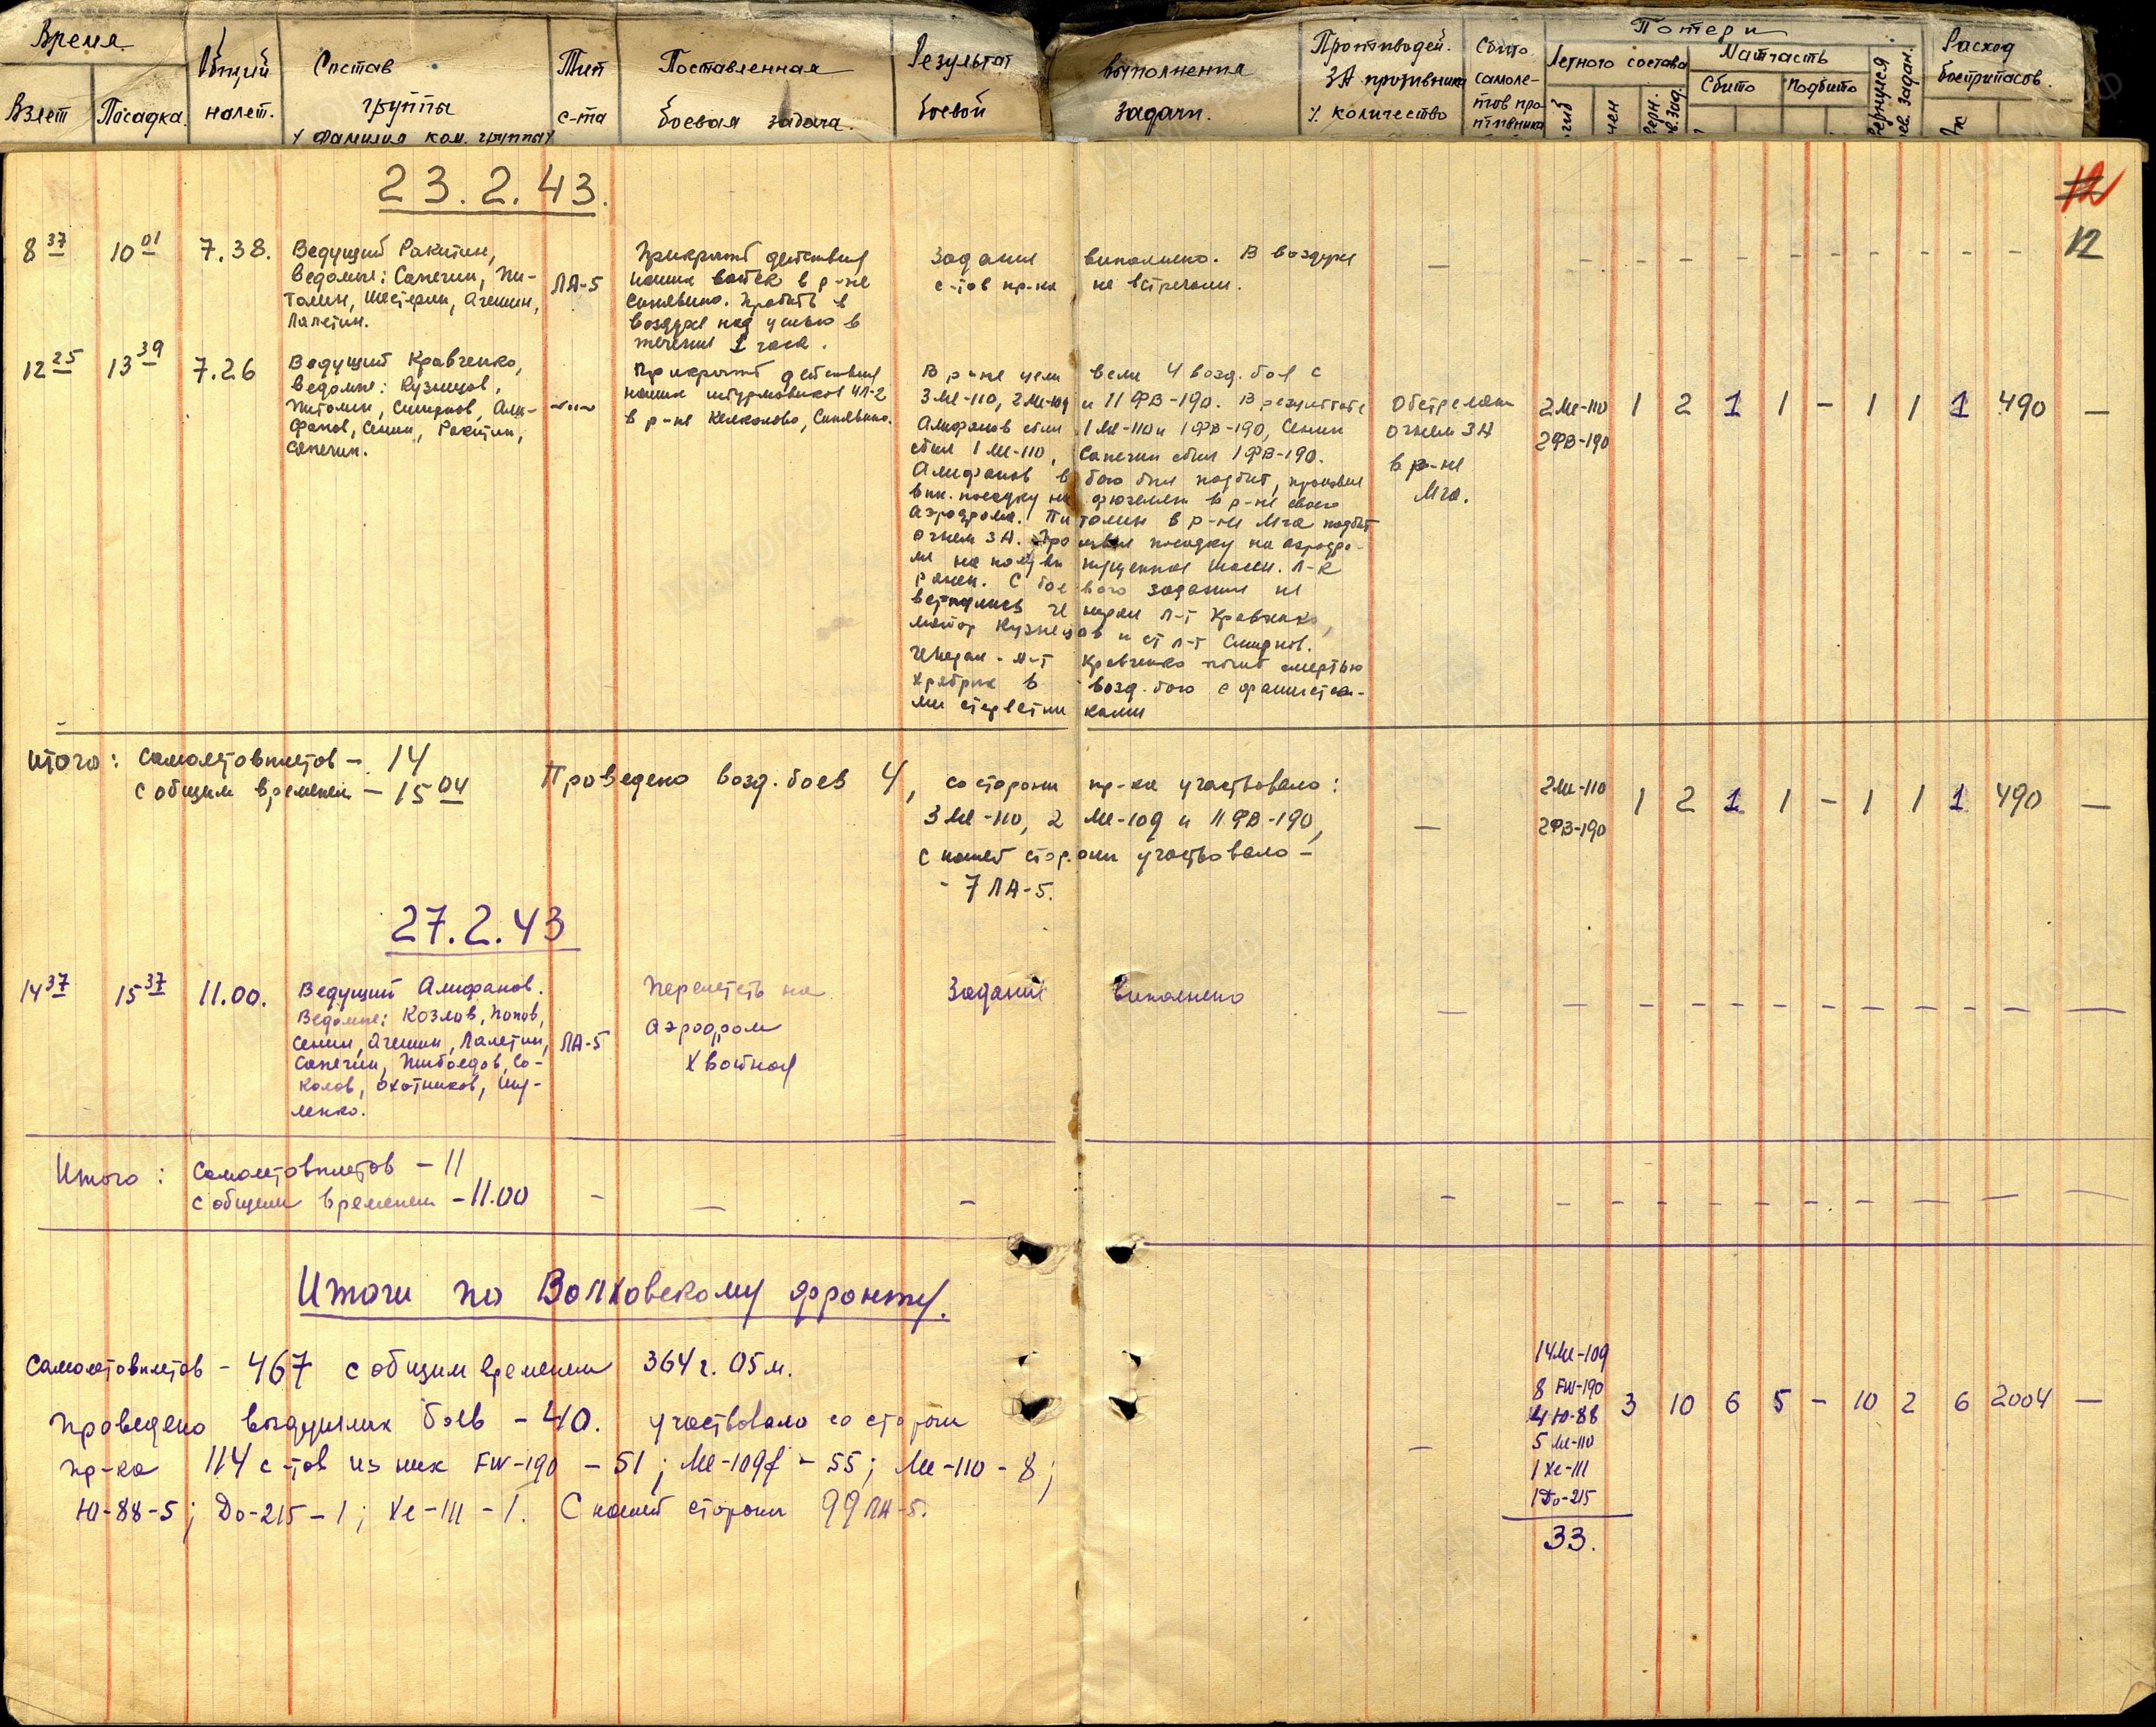 Время
Взлет
Посадка
Общий
налет.
Состав
группы
/фамилия ком. группы/
Тип
с-та
Поставленная
боевая задача.
Результат
боевой
выполнения
задачи.
Противодей.
ЗА противника
/ количество
Сбито
самоле-
тов про-
тивника
Потери
Летного состава
Матчасть
Сбито
Подбито
Расход
боеприпасов.
12
12
23.2.43.
8 37
10 01
7.38.
Ведущий Ракитин,
ведомые: Сапегин, Пи-
толин, Шестерин, Агешин,
Лапетин.
ЛА-5
Прикрыть действия
наших войск в р-не
Синявино. Пробыть в
воздухе над целью в
течении 1 часа.
Задание выполнено. В воздухе
с-тов пр-ка не встречали.
12 25
13 39
7.26
Ведущий Кравченко,
ведомые: Кузнецов,
Питолин, Смирнов, Али-
фанов, Сенин, Ракитин,
Сапегин.
Прикрыть действия
наших штурмовиков ИЛ-2
в р-не Келколово, Синявино.
В р-не цели вели 4 возд. боя с
3 Ме-110, 2 Ме-109 и 11 ФВ-190. В результате
Алифанов сбил 1 Ме-110 и 1 ФВ-190, Сенин
сбил 1 Ме-110, Сапегин сбил 1 ФВ-190.
Алифанов в бою был подбит, произвел
вын. посадку на фюзеляж в р-не своего
аэродрома. Питолин в р-не Мга подбит
огнем ЗА. Произвел посадку на аэродро-
ме на полувыпущенное шасси. Л-к
ранен. С боевого задания не
вернулись ген-л-т Кравченко,
майор Кузнецов и ст л-т Смирнов.
Кравченко погиб смертью
храбрых в возд. бою с фашистски-
ми стервятниками
Обстреляны
огнем ЗА
в р-не
Мга.
2Ме-110
2ФВ-190
1 2 1 1 - 1 1 1 490 —
Итого: самолетовылетов - 14
с общим временем - 15 04
Проведено возд. боев 4, со стороны пр-ка участвовало:
3 Ме-110, 2 Ме-109 и 11 ФВ-190,
с нашей стороны участвовало -
- 7 ЛА-5.
2Ме-110
2ФВ-190
1 2 1 1 - 1 1 1 490 —
27.2.43
14 37
15 37
11.00.
Ведущий Алифанов.
Ведомые: Козлов, Попов,
Сенин, Агешин, Лапетин,
Сапегин, Со-
колов, Охотников, Шу-
ленко.
ЛА-5
Перелететь на
аэродром
Хвойная
Задание выполнено
Итого: самолетовылетов - 11
с общим временем - 11.00
Итоги по Волховскому фронту.
Самолетовылетов - 467 с общим временем 364 г. 05 м.
Проведено воздушных боев - 40. участвовало со стороны
пр-ка 114 с-тов из них FW-190 - 51; Ме-109f - 55; Ме-110 - 8;
Ю-88-5; До-215-1; Хе-111-1. С нашей стороны 99 ЛА-5.
14 Ме-109
8 FW-190
4 Ю-88
5 Ме-110
1 Хе-111
1 До-215
33.
3 10 6 5 - 10 2 6 2004 —